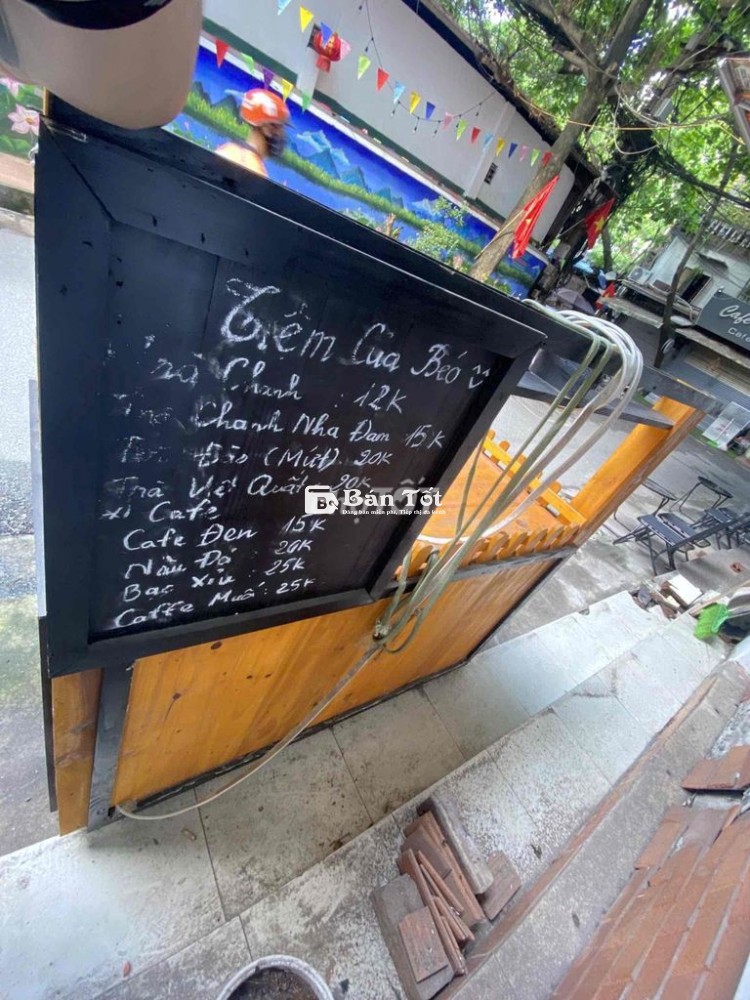 Tiệm Của Béo
Trà Chanh : 12K
Trà Chanh Nha Đam 15K
Trà Đào (Mứt) 20K
Trà Việt Quất 20K
Cafe
Cafe Đen 15K
Nâu Đá : 20K
Bạc Xỉu : 25K
Caffe Muối : 25K
Bán Tốt
Đăng bán miễn phí, Tiếp thị đa kênh
Cafe